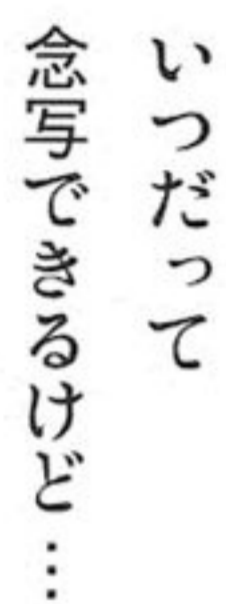 いつだって
念写できるけど…